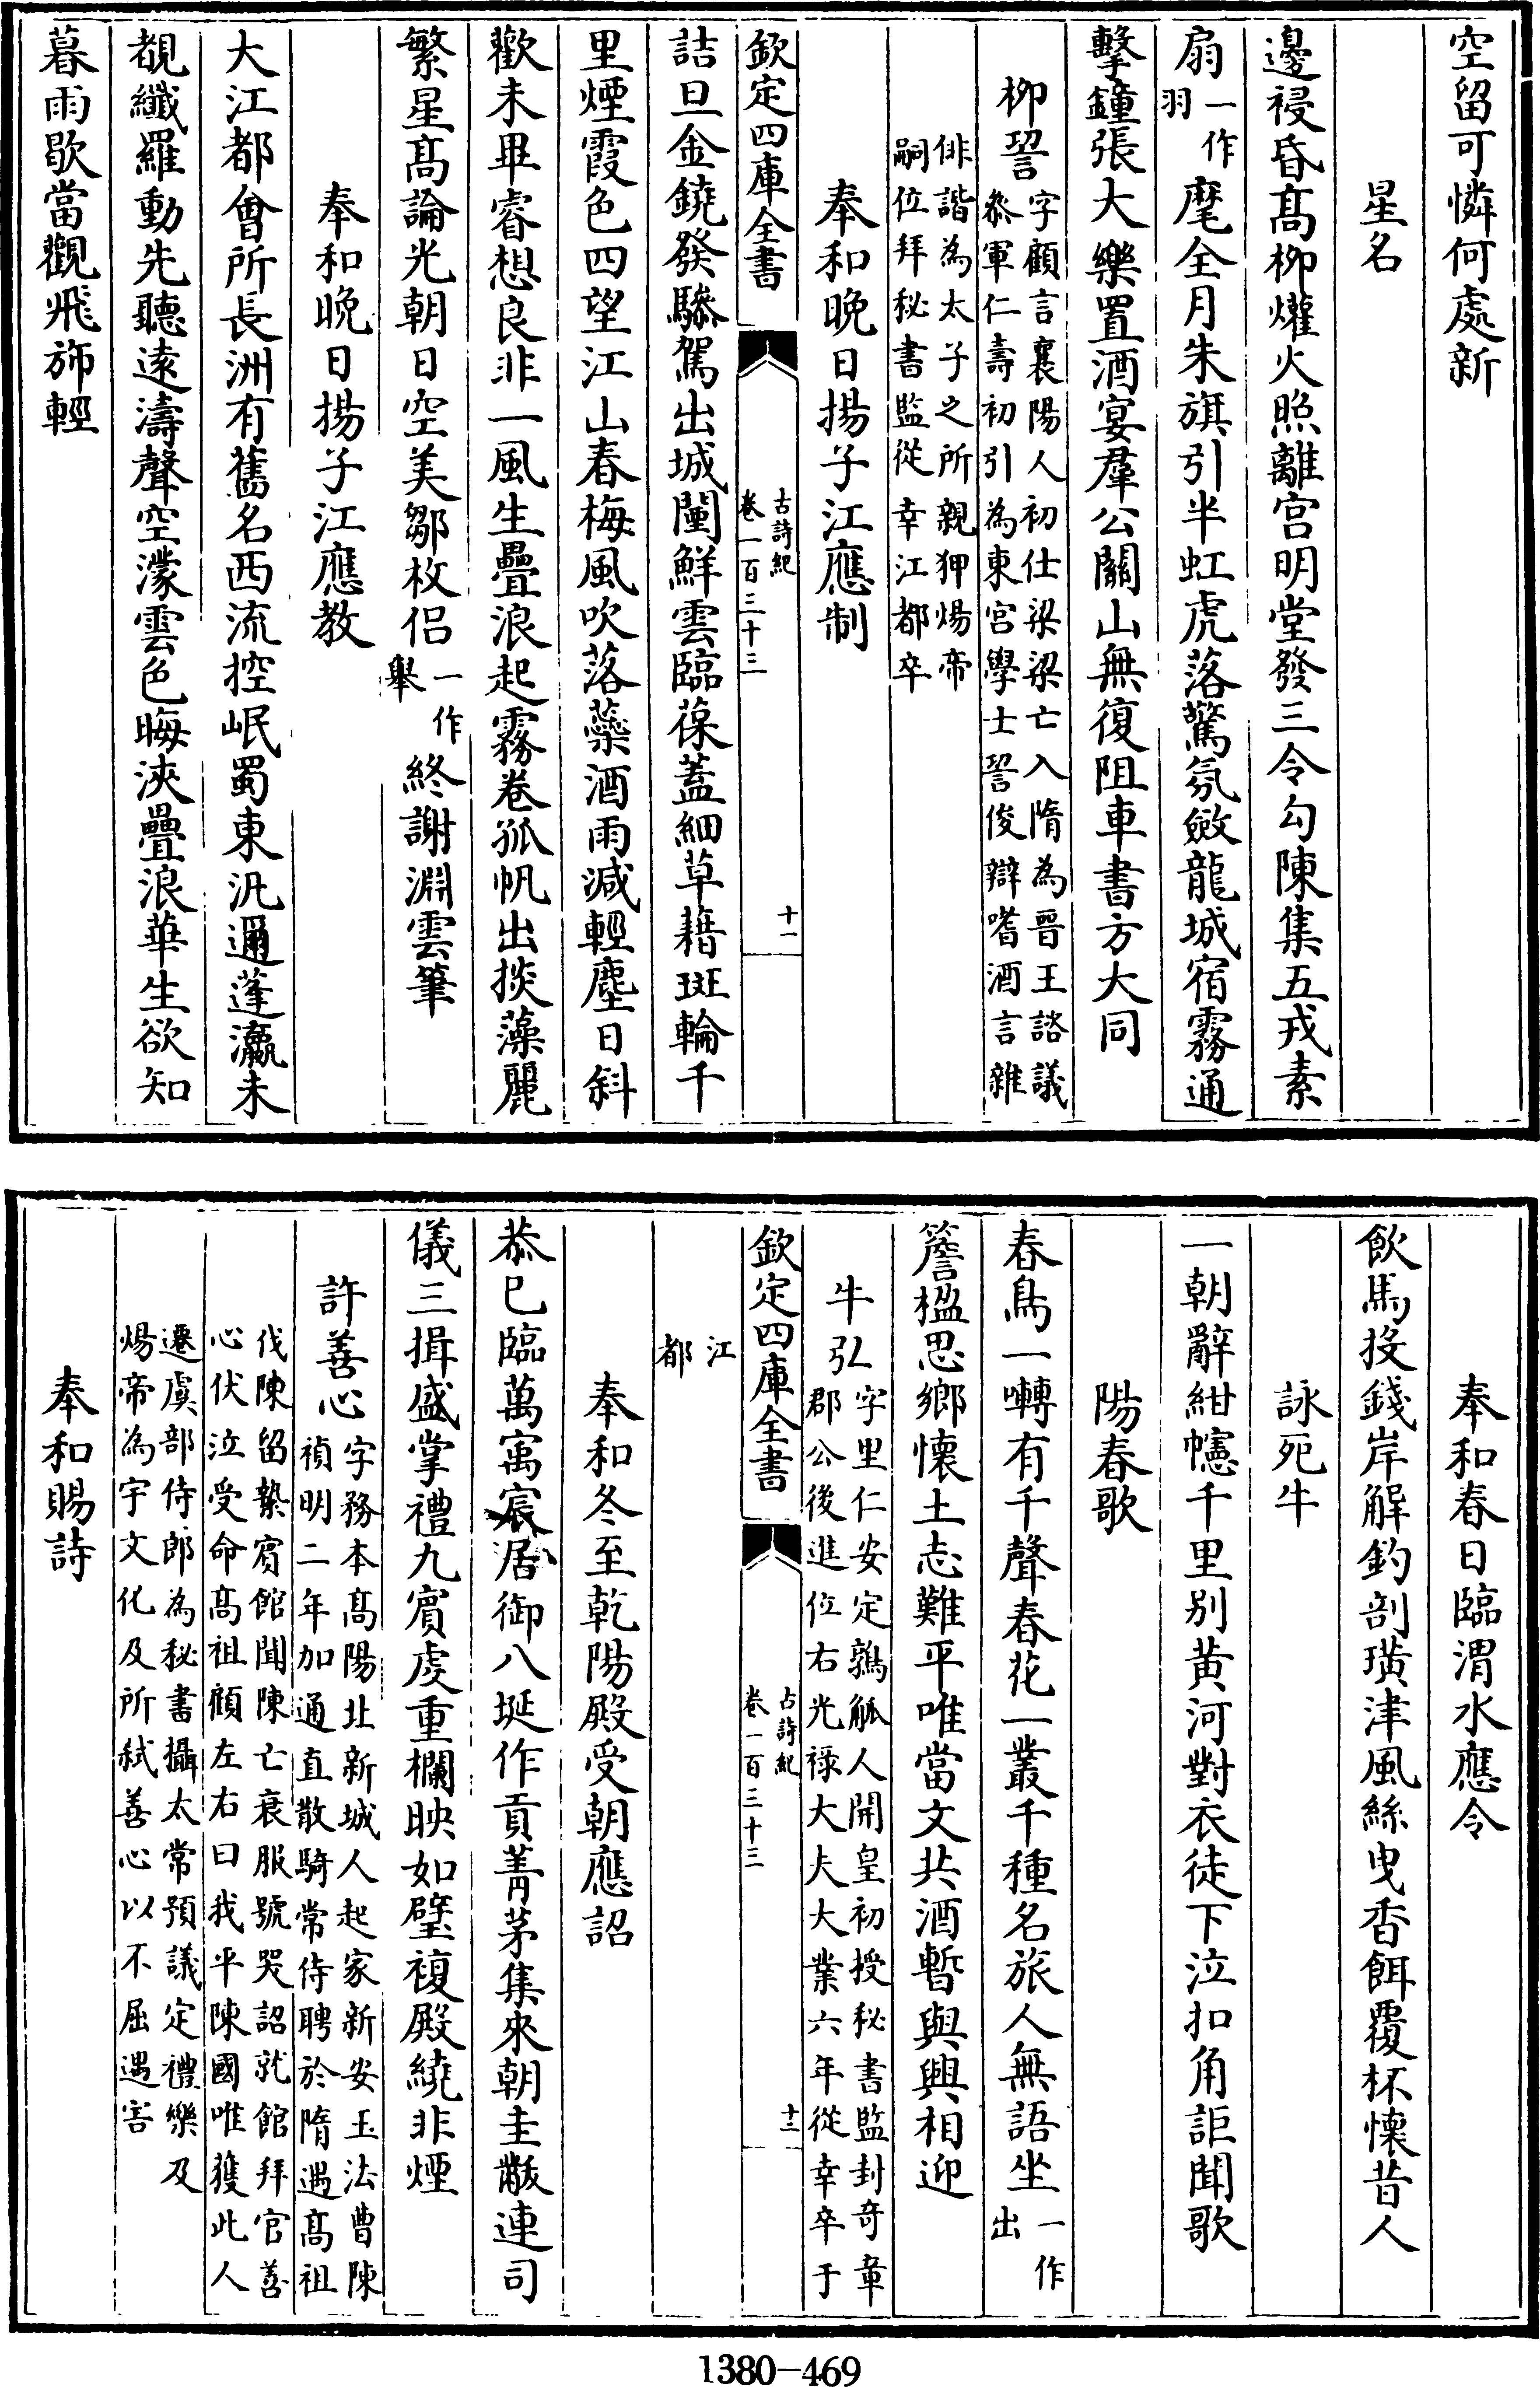 空留可憐何處新
星名
邊祲昏高柳爟火照離宮明堂發三令勾陳集五戎素
扇一作羽麾全月朱旗引半虹虎落驚氛斂龍城宿霧通
擊鐘張大樂置酒宴羣公關山無復阻車書方大同
柳䛒字顧言襄陽人初仕梁梁亡入隋為晉王諮議
叅軍仁壽初引為東宮學士䛒俊辯嗜酒言雜
俳諧為太子之所親狎煬帝
嗣位拜秘書監從幸江都卒
奉和晚日揚子江應制
詰旦金鐃發驂駕出城闉鮮雲臨葆蓋細草藉斑輪千
里煙霞色四望江山春梅風吹落蘂酒雨減輕塵日斜
歡未畢睿想良非一風生疊浪起霧卷孤帆出掞藻麗
繁星高論光朝日空美鄒枚侶一作舉終謝淵雲筆
奉和晚日揚子江應教
大江都會所長洲有舊名西流控岷蜀東汎邇蓬瀛未
覩纖羅動先聽遠濤聲空濛雲色晦浹疊浪華生欲知
暮雨歇當觀飛斾輕
欽定四庫全書
古詩紀
卷一百三十三
十一
奉和春日臨渭水應令
飲馬投錢岸解釣剖璜津風絲曳香餌覆杯懷昔人
詠死牛
一朝辭紺幰千里别黄河對衣徒下泣扣角詎聞歌
陽春歌
春鳥一囀有千聲春花一叢千種名旅人無語坐一作出
簷楹思鄉懷土志難平唯當文共酒暫與興相迎
牛弘字里仁安定鶉觚人開皇初授秘書監封奇章
郡公後進位右光祿大夫大業六年從幸卒于
欽定四庫全書
古詩紀
卷一百三十三
十二
江
都
奉和冬至乾陽殿受朝應詔
恭已臨萬㝢宸居御八埏作貢菁茅集來朝圭黻連司
儀三揖盛掌禮九賓虔重欄映如璧複殿繞非煙
許善心字務本高陽北新城人起家新安王法曹陳
禎明二年加通直散騎常侍聘於隋遇高祖
伐陳留縶賓館聞陳亡衰服號哭詔就館拜官善
心伏泣受命高祖顧左右曰我平陳國唯獲此人
遷虞部侍郎為秘書攝太常預議定禮樂及
煬帝為宇文化及所弒善心以不屈遇害
奉和賜詩
1380-469